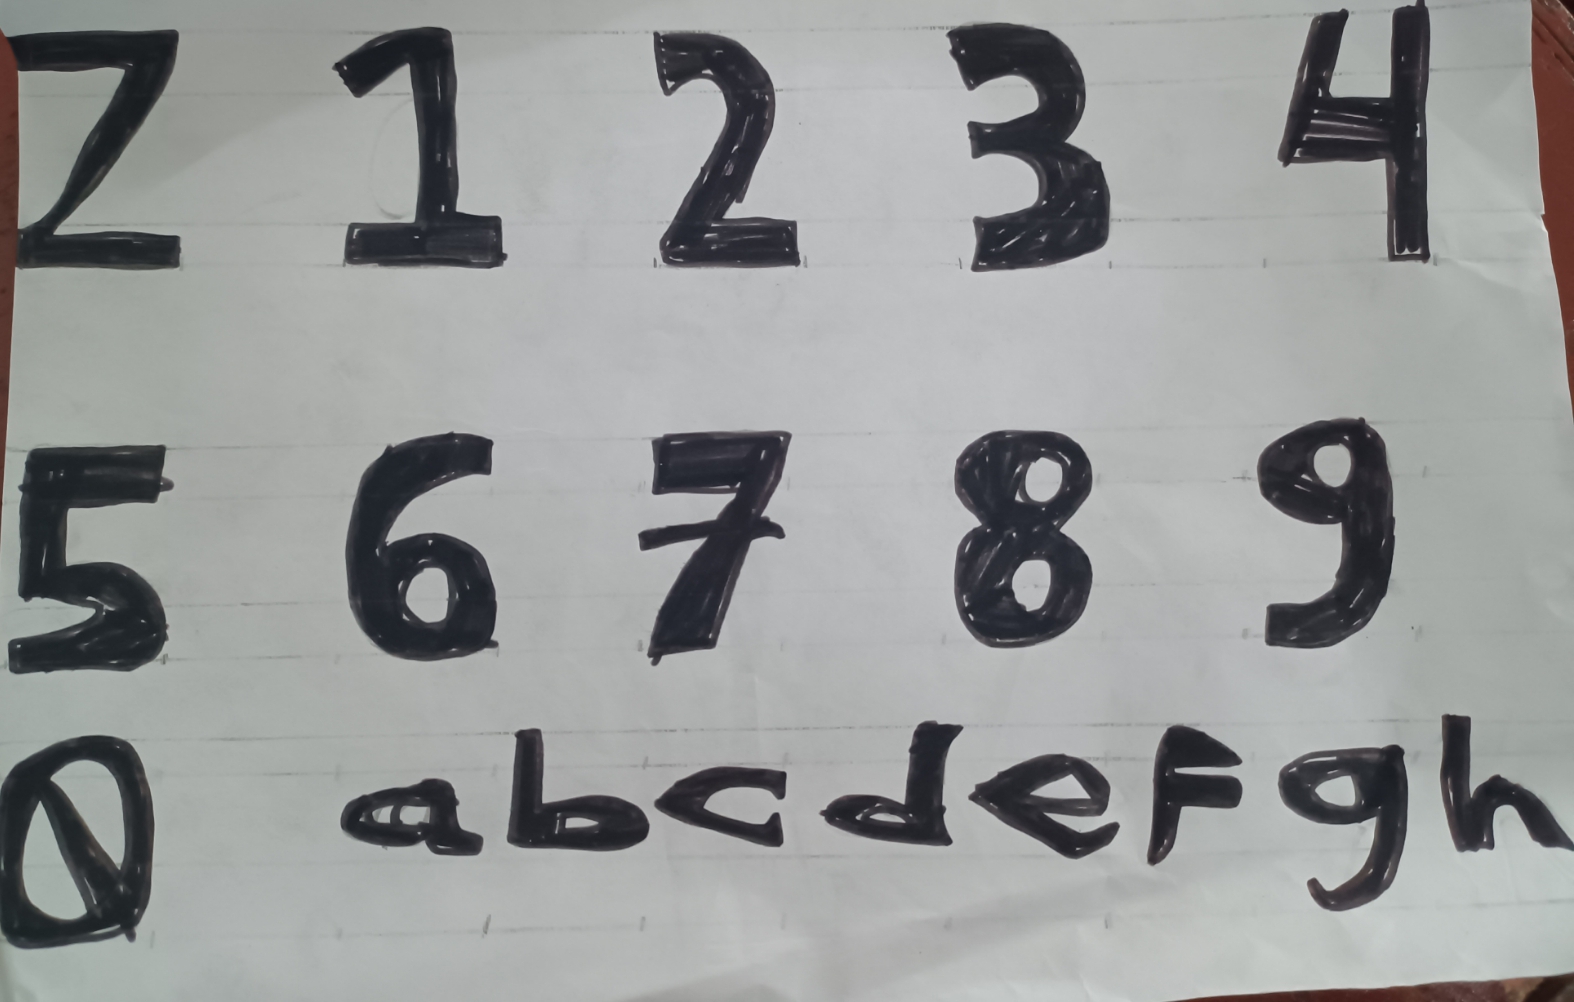 Z 1 2 3 4
5 6 7 8 9
0 a b c d e f g h